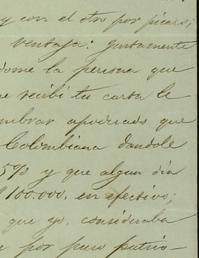 y con el otro por picaro;
ventaja: justamente
dome la persona que
e recibi tu carta le
mbrar apoderado que
Colombiana dandole
5% y que algun dia
$100.000. en efectivo;
que yo. consideraba
e por puro patrio-